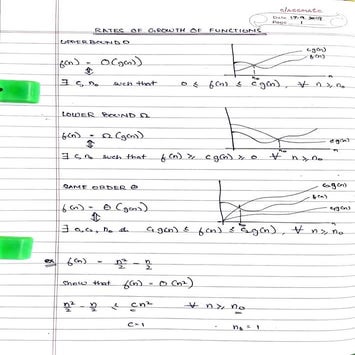 classmate
Date 17.9.2017
Page 1
RATES OF GROWTH OF FUNCTIONS
UPPERBOUND O
f(n) = O(g(n))
⇕
∃ c, n₀ such that 0 ≤ f(n) ≤ cg(n), ∀ n ≥ n₀
cg(n)
f(n)
n₀
LOWER BOUND Ω
f(n) = Ω(g(n))
⇕
∃ c, n₀ such that f(n) ≥ cg(n) ≥ 0 ∀ n ≥ n₀
cg(n)
n₀
SAME ORDER Θ
f(n) = Θ(g(n))
⇕
∃ c₁, c₂, n₀ c₁g(n) ≤ f(n) ≤ c₂g(n), ∀ n ≥ n₀
c₂g(n)
f(n)
n₀
ex f(n) = n²/2 - n/2
show that f(n) = O(n²)
n²/2 - n/2 ≤ cn² ∀ n ≥ n₀
c=1 n₀ = 1